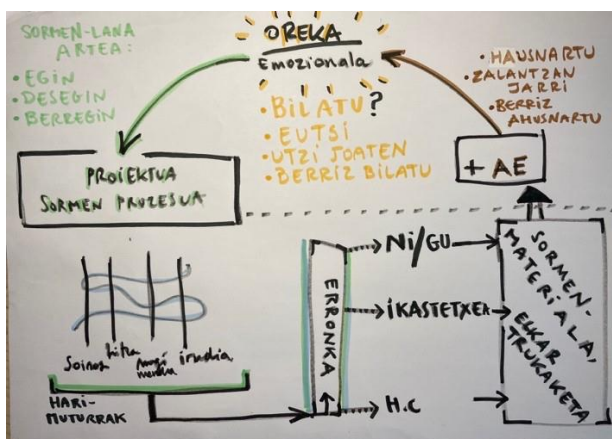 SORMEN-LANA
ARTEA:
• EGIN
• DESEGIN
• BERREGIN
OREKA
Emozionala
• BiLATU?
• EUTSi
• UTZi JOATEN
• BERRiZ BiLATU
• HAUSNARTU
• ZALANTZAN
JARRi
• BERRiZ
AHUSNARTU
PROiEKTUA
SORMEN PROZESUA
+ AE
Soinua
hitza
mugi
mendua
irudia
HARi-
MUTURRAK
ERRONKA
Ni/GU
iKASTETXEA
H.C
SORMEN-
MATERiALA,
ELKAR
TRUKAKETA